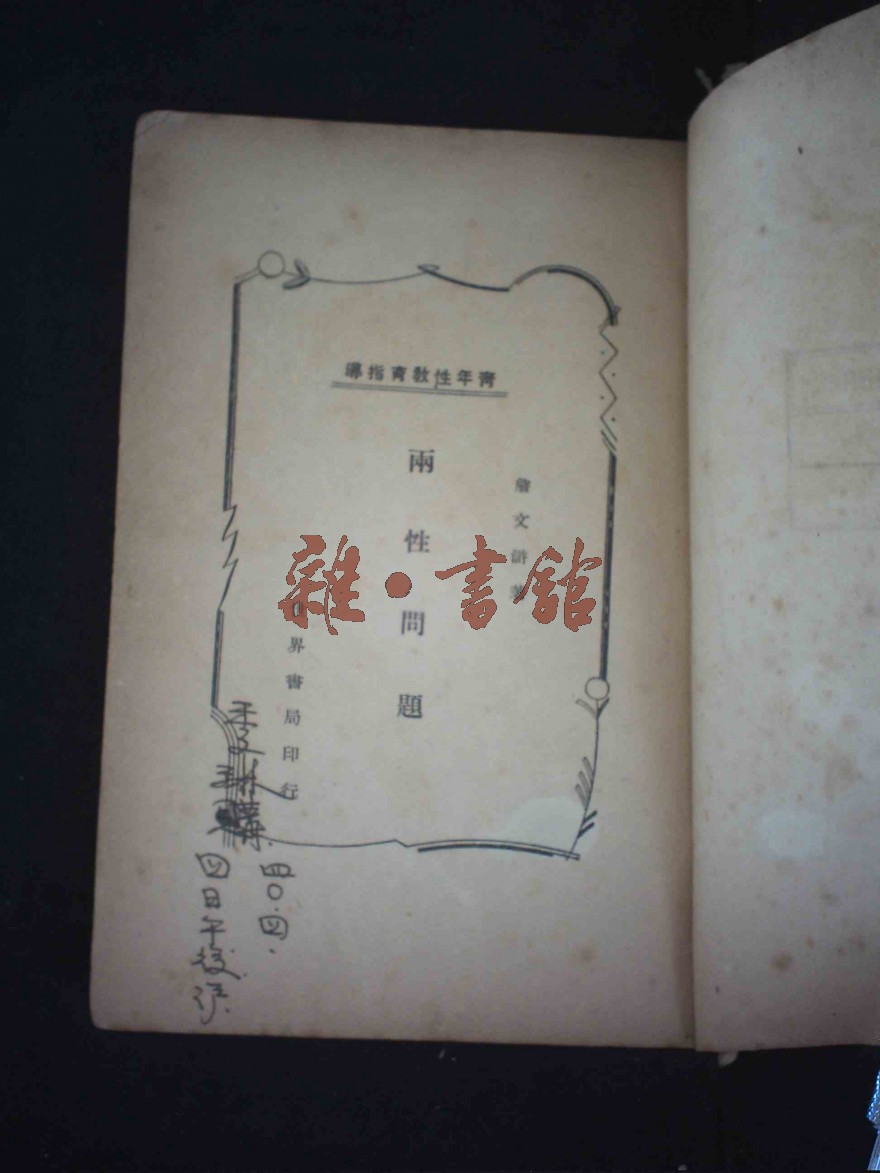 青年性教育指導
詹文滸著
兩性問題
界書局印行
雜·書館
四〇.四.
四日午後